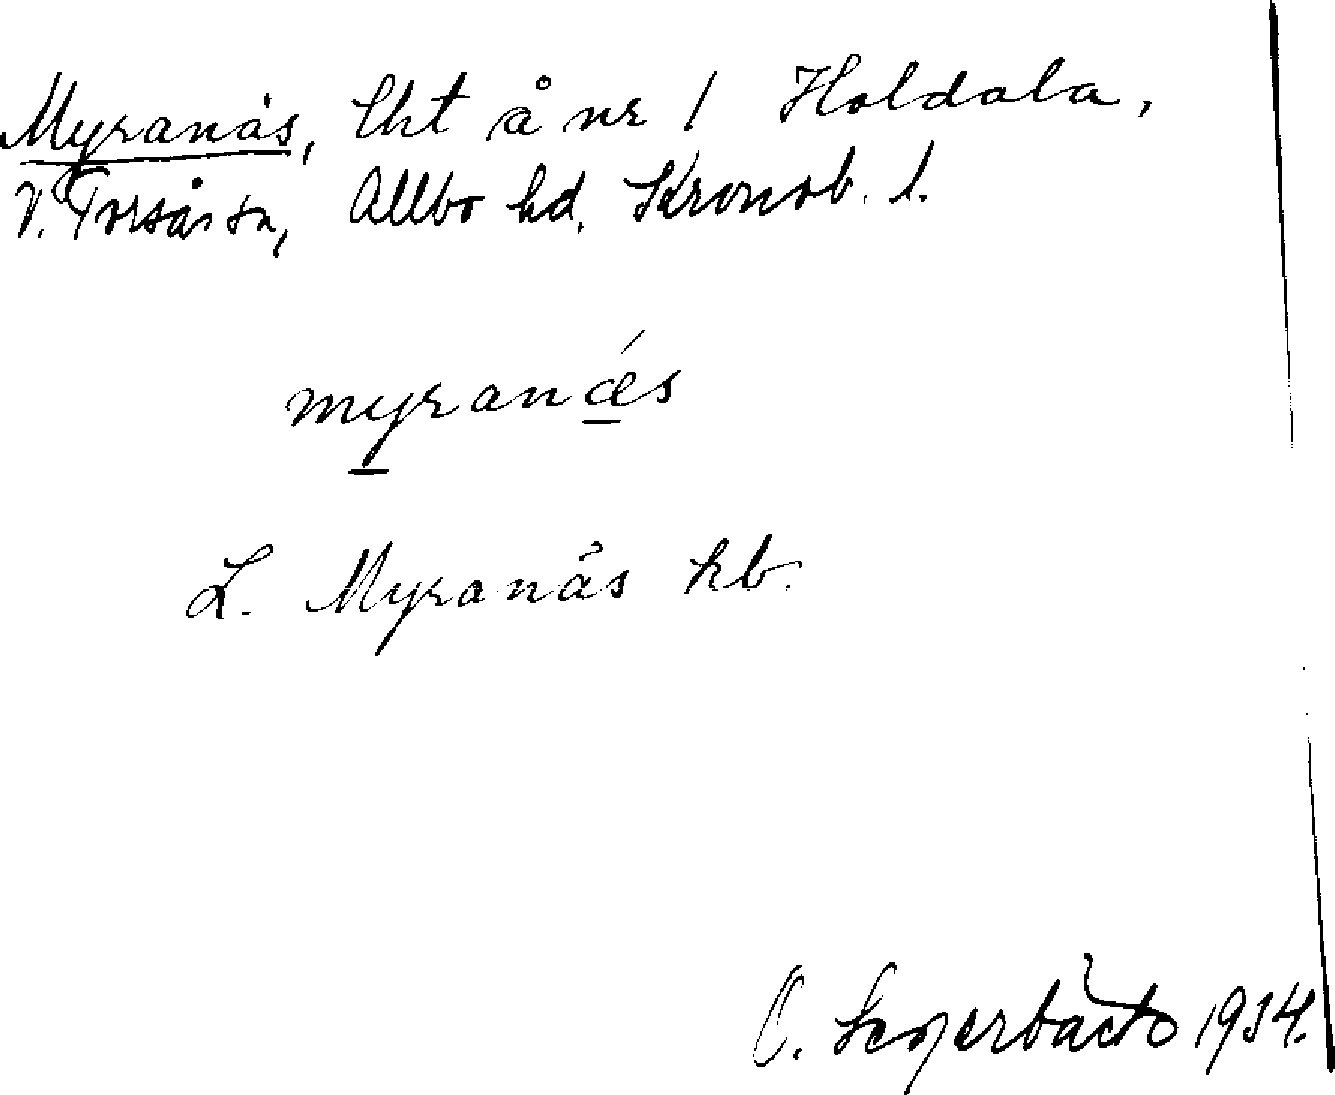 Myranäs, lht å nr 1 Holdala,
V. Torsås sn, Allbo hd, Kronob. l.
myranæ´s
L. Myranäs kb.
C. 1934.